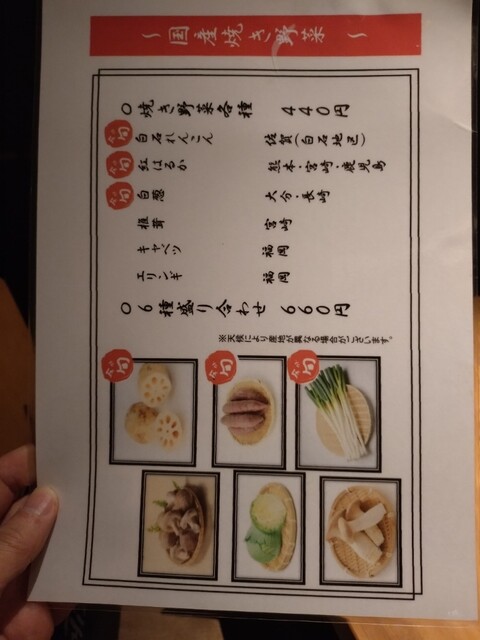 ～国産焼き野菜～
○焼き野菜各種 440円
今が旬 白石れんこん 佐賀(白石地区)
今が旬 紅はるか 熊本・宮崎・鹿児島
今が旬 白葱 大分・長崎
椎茸 宮崎
キャベツ 福岡
エリンギ 福岡
○6種盛り合わせ 660円
※天候により産地が異なる場合がございます。
今が旬
今が旬
今が旬